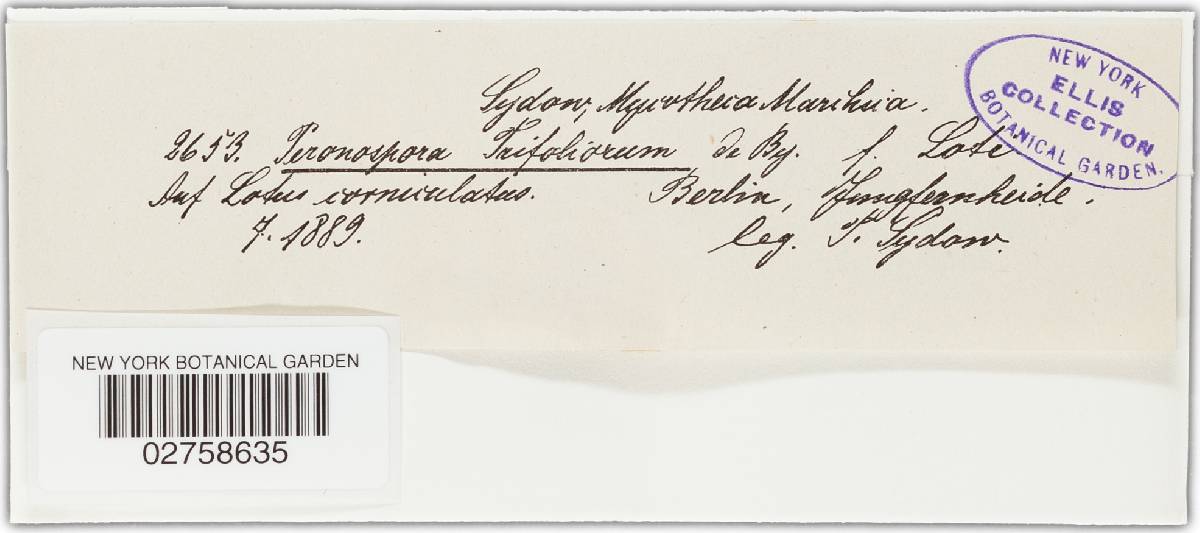 Sydow, Mycotheca Marchica.
2653. Peronospora Trifoliorum de By. f. Loti
Auf Lotus corniculatus. Berlin, Jungfernheide.
7. 1889. leg. P. Sydow.
NEW YORK
ELLIS
COLLECTION
BOTANICAL GARDEN.
NEW YORK BOTANICAL GARDEN
02758635